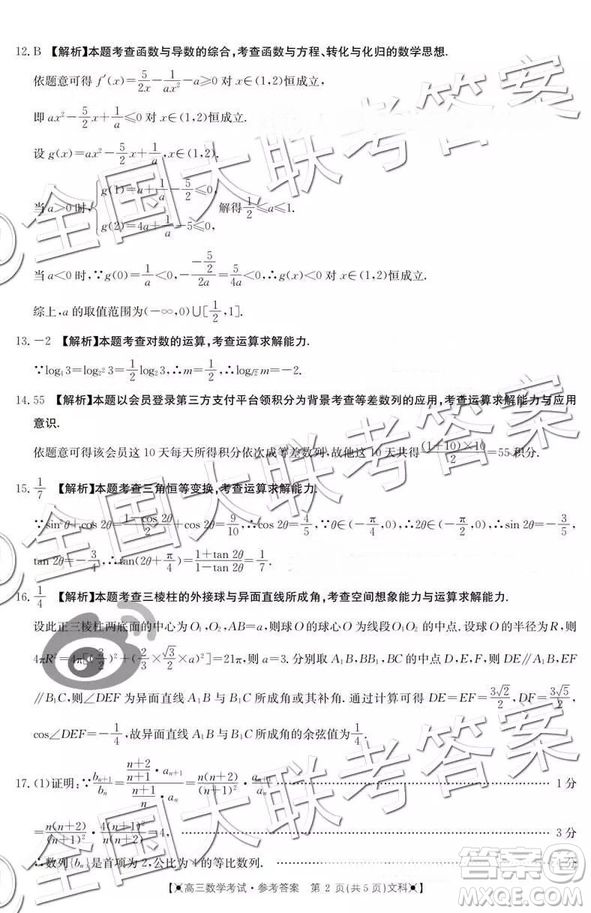 12. B 【解析】本题考查函数与导数的综合,考查函数与方程、转化与化归的数学思想.
依题意可得 f′(x)=5/(2x)-1/(ax²)-a≥0 对 x∈(1,2)恒成立,
即 ax²-(5/2)x+1/a≤0 对 x∈(1,2)恒成立.
设 g(x)=ax²-(5/2)x+1/a,
当 a>0 时,{g(1)=a+1/a-5/2≤0, g(2)=4a+1/a-5≤0, 解得1/2≤a≤1.
当 a<0 时,∵g(0)=1/a<0,
综上,a 的取值范围为(-∞,0)∪[1/2,1].
13. -2 【解析】本题考查对数的运算,考查运算求解能力.
14. 55 【解析】本题以会员登录第三方支付平台领积分为背景考查等差数列的应用,考查运算求解能力与应用
意识.
依题意可得该会员这 10 天每天所得积分依次成等差数列,故他这 10 天共得 (1+10)×10/2=55 积分.
15. 1/7 【解析】本题考查三角恒等变换,考查运算求解能力.
∴cos 2θ=4/5. ∵θ∈(-π/4,0),∴2θ∈(-π/2,0),∴sin 2θ=-3/5,
tan 2θ=-3/4,∴tan(2θ+π/4)=(1+tan 2θ)/(1-tan 2θ)=1/7.
16. 1/4 【解析】本题考查三棱柱的外接球与异面直线所成角,考查空间想象能力与运算求解能力.
设此正三棱柱两底面的中心为 O₁,O₂,AB=a,则球 O 的球心 O 为线段 O₁O₂ 的中点. 设球 O 的半径为 R,则
4πR²=4π[( )²+(2/3×√3/2×a)²]=21π,则 a=3. 分别取 A₁B₁,BB₁,B₁C₁ 的中点 D,E,F,则 DE∥A₁B,EF
∥B₁C,则∠DEF 为异面直线 A₁B 与 B₁C 所成角或其补角. 易得 DE=EF=3√2/2,DF=3√5/2,
cos∠DEF=-1/4,故异面直线 A₁B 与 B₁C 所成角的余弦值为1/4.
17. (1)证明:
3 分
∴数列{bₙ}是首项为 2,公比为 4 的等比数列.
高三数学考试·参考答案 第 2 页(共 5 页)文科
全国大联考答案